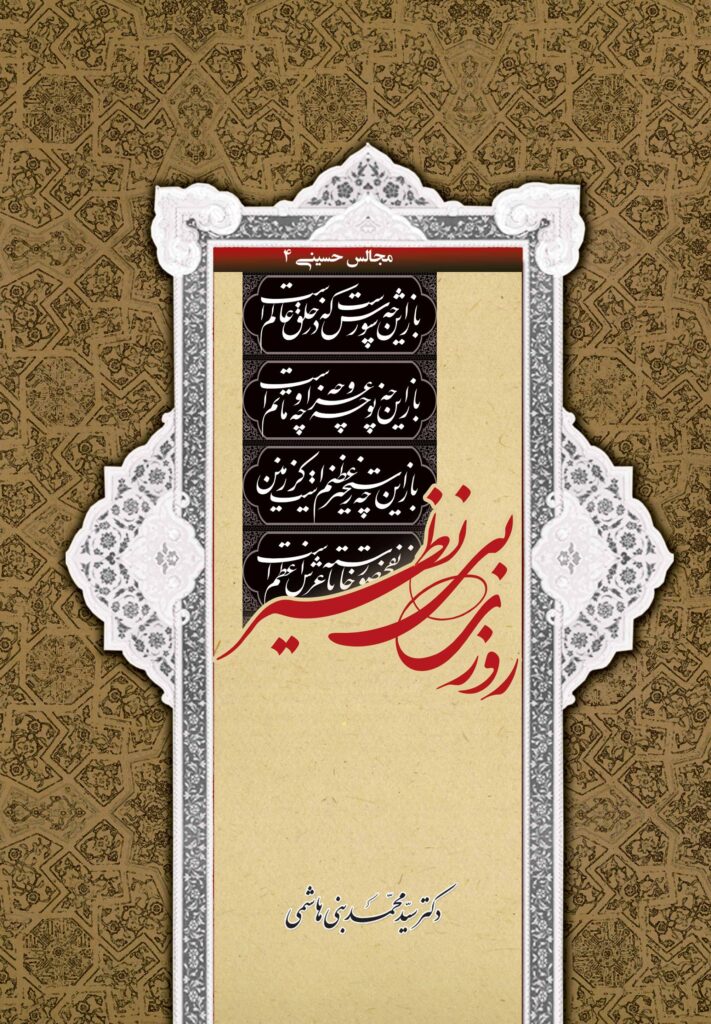 مجالس حسینی ۴
باز این چه شورش است که در خلق عالم است
باز این چه نوحه و چه عزا و چه ماتم است
باز این چه رستخیز عظیم است کز زمین
بی نفخ صور خاسته تا عرش اعظم است
روزی بی نظیر
دکتر سیّد محمّد بنی هاشمی